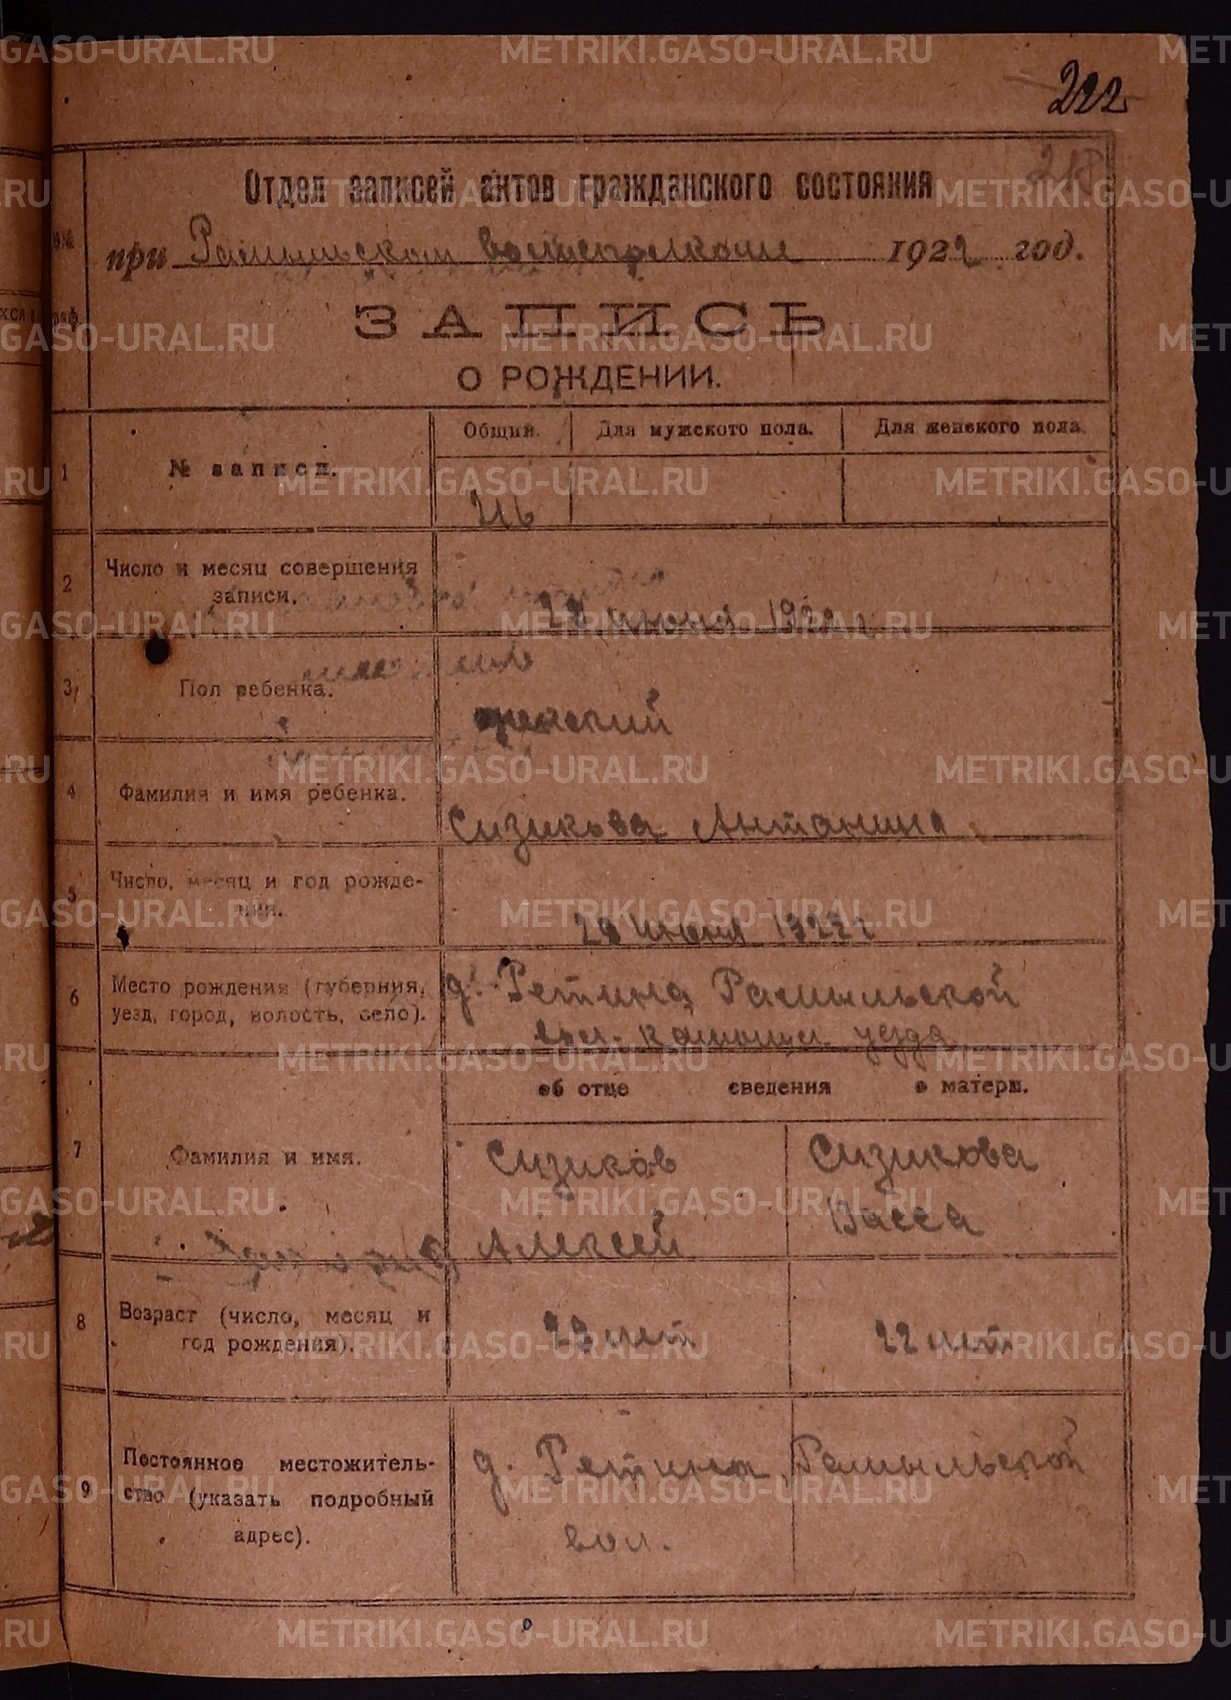 222
218
Отдел записей актов гражданского состояния
при Рамыльском волисполкоме 1922 год.
ЗАПИСЬ
О РОЖДЕНИИ.
Общий. Для мужского пола. Для женского пола.
1 № записи.
216
2 Число и месяц совершения
записи.
июня 1922 г.
3 Пол ребенка.
женский
4 Фамилия и имя ребенка.
Сизикова Антанина
5 Число, месяц и год рожде-
ния.
20 июня 1922 г
6 Место рождения (губерния,
уезд, город, волость, село).
д. Ретина Рамыльской
вол. Камышл. уезда
об отце сведения о матери.
7 Фамилия и имя.
Сизиков Сизикова
Алексей Васса
8 Возраст (число, месяц и
год рождения).
23 лет 22 лет
9 Постоянное местожитель-
ство (указать подробный
адрес).
д. Ретина Рамыльской
вол.
METRIKI.GASO-URAL.RU